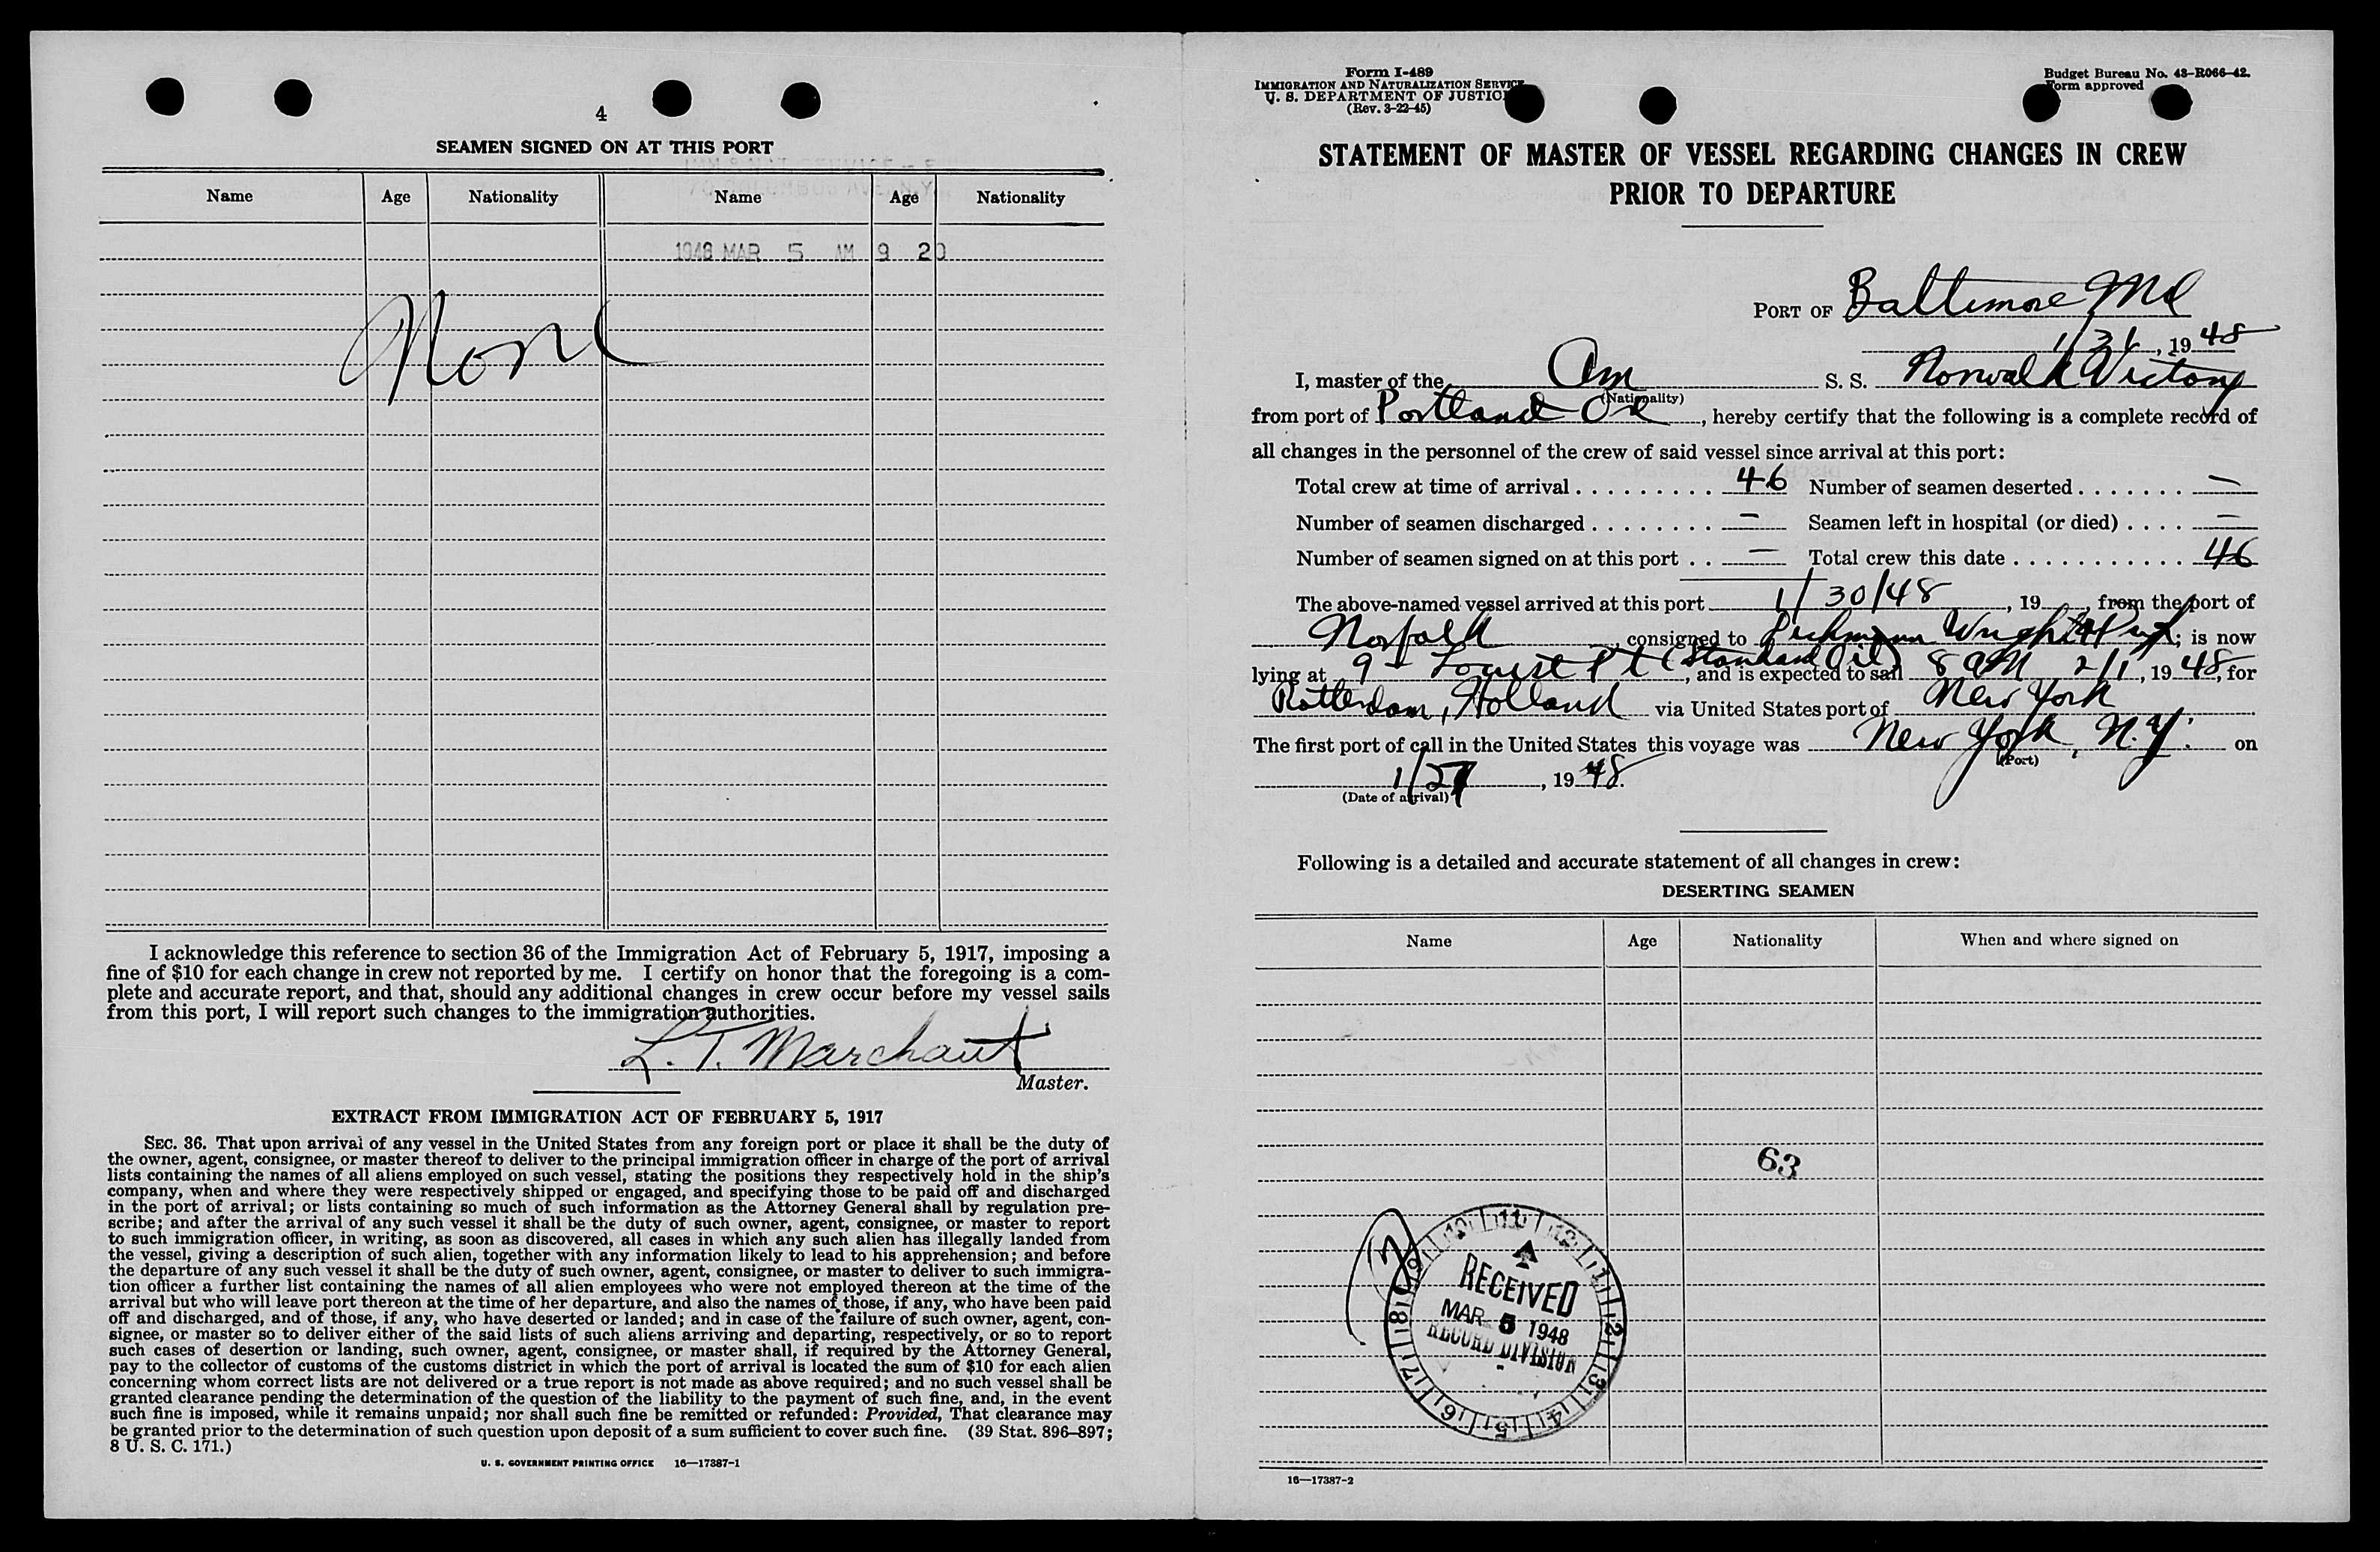 4
SEAMEN SIGNED ON AT THIS PORT
Name Age Nationality Name Age Nationality
1948 MAR 5 AM 9 20
None
I acknowledge this reference to section 36 of the Immigration Act of February 5, 1917, imposing a
fine of $10 for each change in crew not reported by me. I certify on honor that the foregoing is a com-
plete and accurate report, and that, should any additional changes in crew occur before my vessel sails
from this port, I will report such changes to the immigration authorities.
L. T. Marchant
Master.
EXTRACT FROM IMMIGRATION ACT OF FEBRUARY 5, 1917
SEC. 36. That upon arrival of any vessel in the United States from any foreign port or place it shall be the duty of
the owner, agent, consignee, or master thereof to deliver to the principal immigration officer in charge of the port of arrival
lists containing the names of all aliens employed on such vessel, stating the positions they respectively hold in the ship's
company, when and where they were respectively shipped or engaged, and specifying those to be paid off and discharged
in the port of arrival; or lists containing so much of such information as the Attorney General shall by regulation pre-
scribe; and after the arrival of any such vessel it shall be the duty of such owner, agent, consignee, or master to report
to such immigration officer, in writing, as soon as discovered, all cases in which any such alien has illegally landed from
the vessel, giving a description of such alien, together with any information likely to lead to his apprehension; and before
the departure of any such vessel it shall be the duty of such owner, agent, consignee, or master to deliver to such immigra-
tion officer a further list containing the names of all alien employees who were not employed thereon at the time of the
arrival but who will leave port thereon at the time of her departure, and also the names of those, if any, who have been paid
off and discharged, and of those, if any, who have deserted or landed; and in case of the failure of such owner, agent, con-
signee, or master so to deliver either of the said lists of such aliens arriving and departing, respectively, or so to report
such cases of desertion or landing, such owner, agent, consignee, or master shall, if required by the Attorney General,
pay to the collector of customs of the customs district in which the port of arrival is located the sum of $10 for each alien
concerning whom correct lists are not delivered or a true report is not made as above required; and no such vessel shall be
granted clearance pending the determination of the question of the liability to the payment of such fine, and, in the event
such fine is imposed, while it remains unpaid; nor shall such fine be remitted or refunded: Provided, That clearance may
be granted prior to the determination of such question upon deposit of a sum sufficient to cover such fine. (39 Stat. 896–897;
8 U. S. C. 171.)
U. S. GOVERNMENT PRINTING OFFICE 16—17387-1
Form I-489
IMMIGRATION AND NATURALIZATION SERVICE
U. S. DEPARTMENT OF JUSTICE
(Rev. 3-22-45)
Budget Bureau No. 43-R066-42.
Form approved
STATEMENT OF MASTER OF VESSEL REGARDING CHANGES IN CREW
PRIOR TO DEPARTURE
PORT OF Baltimore Md
1/31, 1948
I, master of the Am S. S. Norwalk Victory
(Nationality)
from port of Portland Ore, hereby certify that the following is a complete record of
all changes in the personnel of the crew of said vessel since arrival at this port:
Total crew at time of arrival 46 Number of seamen deserted —
Number of seamen discharged — Seamen left in hospital (or died) —
Number of seamen signed on at this port — Total crew this date 46
The above-named vessel arrived at this port 1/30/48, 19 , from the port of
Norfolk, consigned to Wright; is now
lying at 9 Locust Pt (Standard Oil), and is expected to sail 8 AM 2/1, 1948, for
Rotterdam, Holland via United States port of New York
The first port of call in the United States this voyage was New York, N.Y. on
(Port)
1/27, 1948.
(Date of arrival)
Following is a detailed and accurate statement of all changes in crew:
DESERTING SEAMEN
Name Age Nationality When and where signed on
63
RECEIVED
MAR 5 1948
RECORD DIVISION
16—17387-2